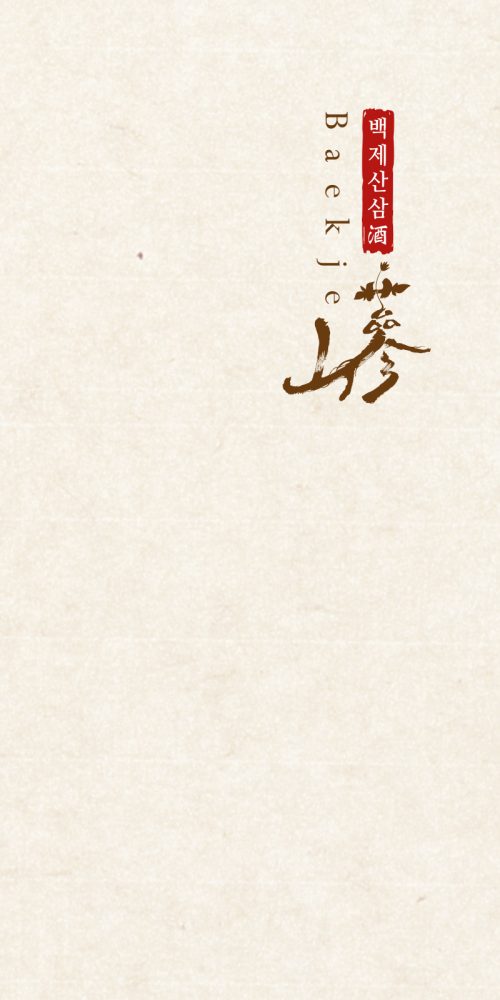 백제산삼酒
Baekje
山蔘